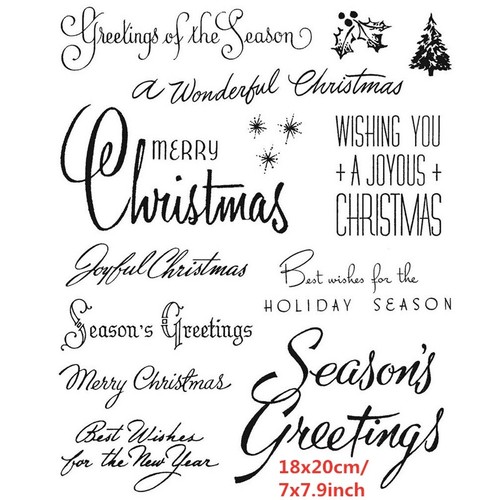 Greetings of the Season
a Wonderful Christmas
MERRY
Christmas
WISHING YOU
+ A JOYOUS +
CHRISTMAS
Joyful Christmas
Best wishes for the
HOLIDAY SEASON
Season's Greetings
Merry Christmas
Season's
Greetings
Best Wishes
for the New Year
18x20cm/
7x7.9inch